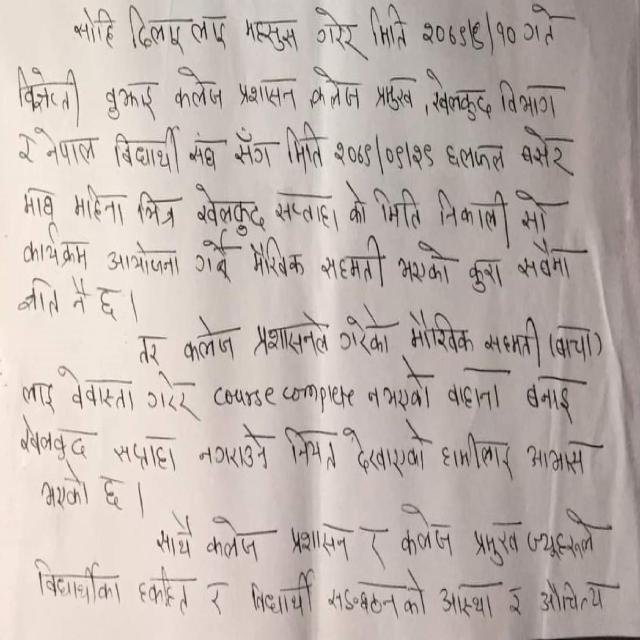 सोहि ढिलाइ लाइ महसुस गरेर मिति २०७८/९/१० गते
विज्ञप्ती बुझाई कलेज प्रशासन, कलेज प्रमुख, खेलकुद विभाग
र नेपाल विद्यार्थी संघ सँग मिति २०७८/०९/२९ छलफल बसेर
माघ महिना भित्र खेलकुद सप्ताहा को मिति निकाली सो
कार्यक्रम आयोजना गर्ने मौखिक सहमती भएको कुरा सबैमा
बिति नै छ।
तर कलेज प्रशासनले गरेको मौखिक सहमती (वाचा)
लाइ वेवास्ता गरेर course complete नभएको वाहाना बनाई
खेलकुद सप्ताहा नगराउने नियत देखाएको हामीलाइ आभास
भएको छ।
साथै कलेज प्रशासन र कलेज प्रमुख ज्यूहरुले
विद्यार्थीका हकहित र विद्यार्थी सङ्गठनको आस्था र औचित्य